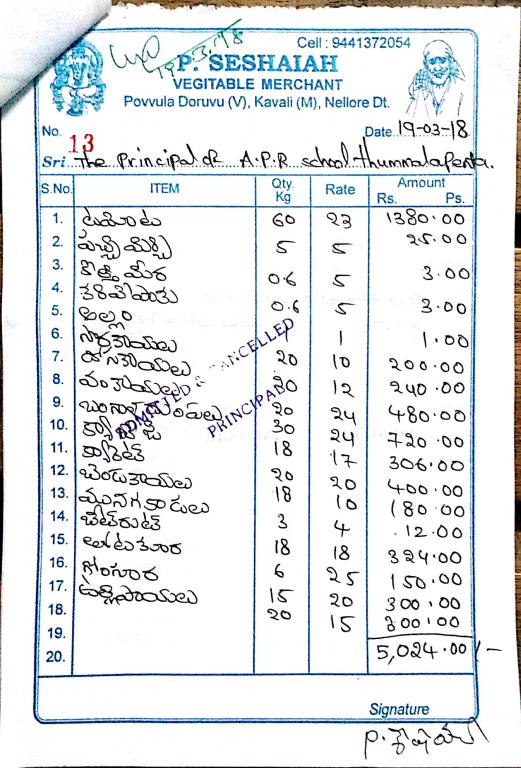 19.3.18
Cell : 9441372054
P. SESHAIAH
VEGITABLE MERCHANT
Povvula Doruvu (V), Kavali (M), Nellore Dt.
No. 13 Date 19-03-18
Sri The Principal of A.P.R school thummalapenta.
S.No. ITEM Qty. Kg Rate Amount Rs. Ps.
1. టమోట 60 23 1380.00
2. పచ్చిమిర్చి 5 5 25.00
3. కొత్తిమీర 0.6 5 3.00
4. కరివేపాకు 0.6 5 3.00
5. అల్లం 1 1.00
6. సొరకాయలు 20 10 200.00
7. దోసకాయలు 20 12 240.00
8. వంకాయలు 20 24 480.00
9. 30 24 720.00
10. క్యాబేజి 18 17 306.00
11. క్యారెట్ 20 20 400.00
12. బెండకాయలు 18 10 180.00
13. మునగకాడలు 3 4 12.00
14. బీట్రూట్ 18 18 324.00
15. తోటకూర 6 25 150.00
16. గోంగూర 15 20 300.00
17. ఉల్లిపాయలు 20 15 300.00
18.
19.
20. 5,024.00/-
ADMITTED & CANCELLED
PRINCIPAL
Signature
P. శేషయ్య